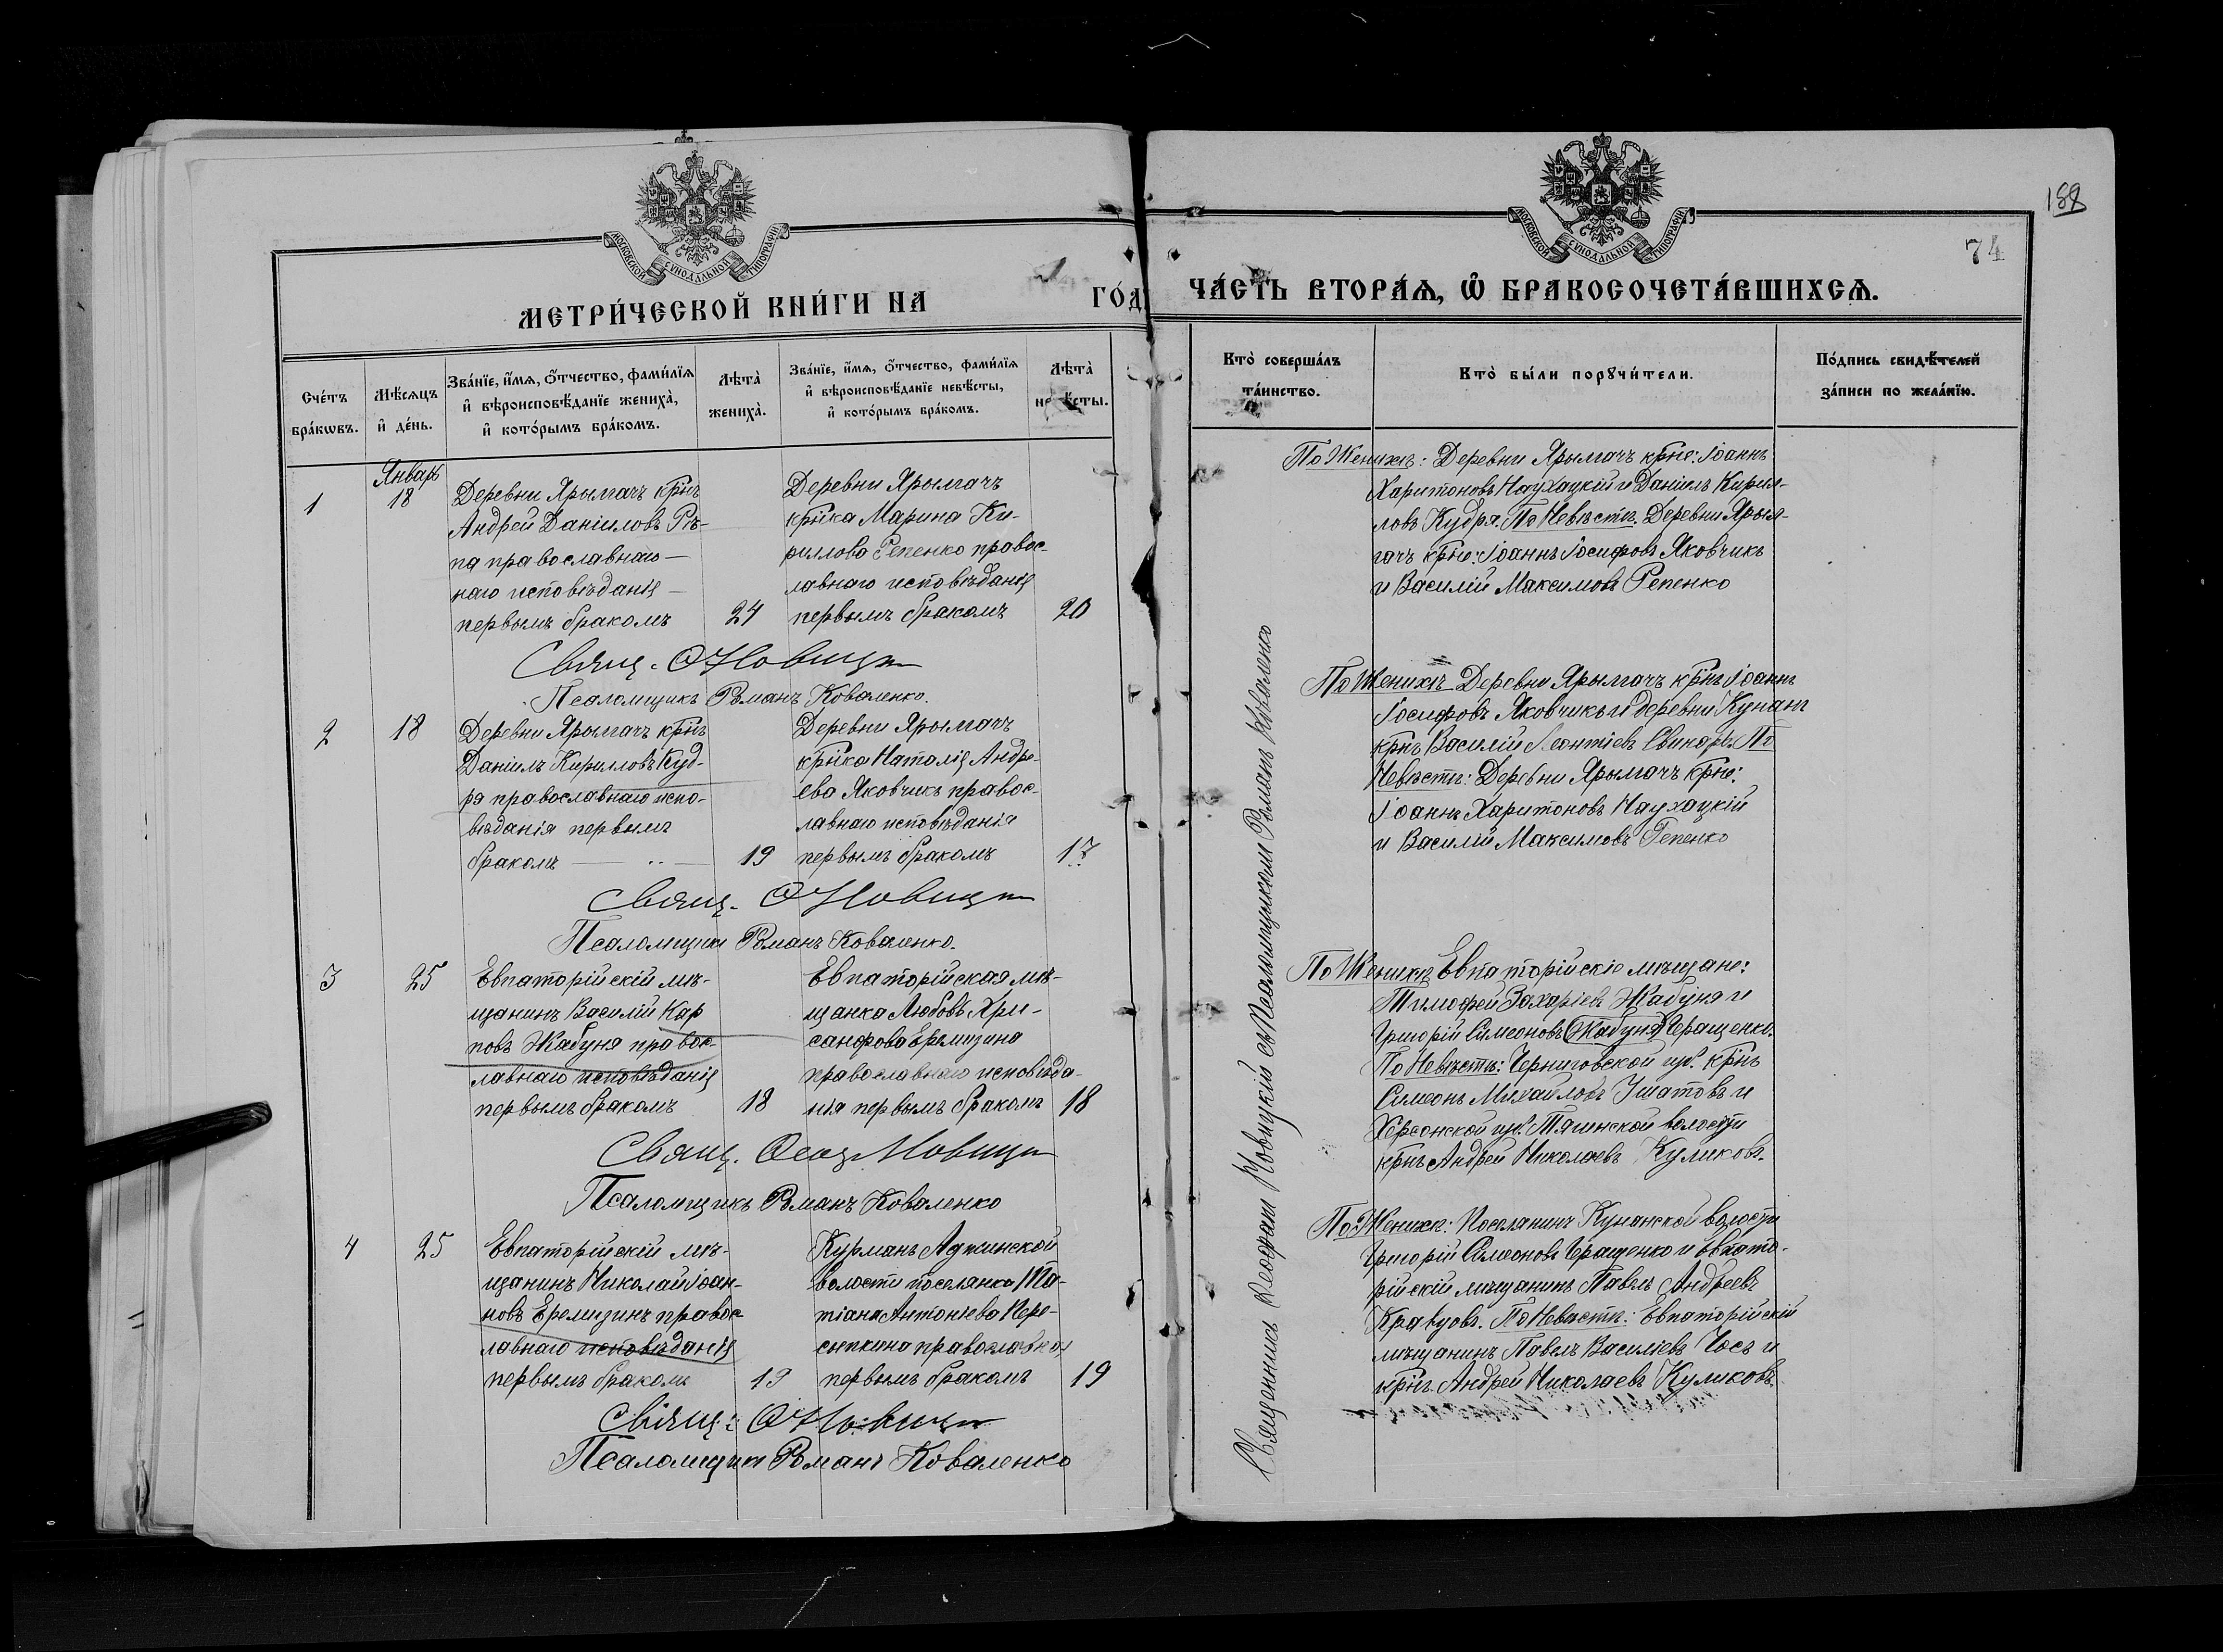 188
74
МОСКОВСКОЙ СѴНОДАЛЬНОЙ ТИПОГРАФІИ
МОСКОВСКОЙ СѴНОДАЛЬНОЙ ТИПОГРАФІИ
МЕТРИ́ЧЕСКОЙ КНИ́ГИ НА ГО́Д
ЧА́СТЬ ВТОРА́Ѧ, Ѡ҆ БРАКОСОЧЕТА́ВШИХСѦ.
Сче́тъ бра́кѡвъ.
Мѣ́сѧцъ и҆ де́нь.
Зва́нїе, и҆́мѧ, ѻ҆́тчество, фами́лїѧ и҆ вѣроисповѣ́данїе жениха̀, и҆ кото́рымъ бра́комъ.
Лѣта̀ жениха̀.
Зва́нїе, и҆́мѧ, ѻ҆́тчество, фами́лїѧ и҆ вѣроисповѣ́данїе невѣ́сты, и҆ кото́рымъ бра́комъ.
Лѣта̀ невѣ́сты.
Кто̀ соверша́лъ та́инство.
Кто̀ бы́ли порꙋчи́тели.
По́дпись свидѣ́телей за́писи по жела́нїю.
1
Январь
18
Деревни Ярылгачъ крнъ
Андрей Даніиловъ Рѣ-
па православнаго —
наго исповѣданія —
первымъ бракомъ
24
Деревни Ярылгачъ
крнка Марина Ки-
риллова Репенко правос-
лавнаго исповѣданія
первымъ бракомъ
20
Свящ. Ѳ Новицк
Псаломщикъ Романъ Коваленко.
2
18
Деревни Ярылгачъ крнъ
Даніилъ Кирилловъ Куд-
ря православнаго испо-
вѣданія первымъ
бракомъ
19
Деревни Ярылгачъ
крнка Наталія Андре-
ева Яковчикъ правос-
лавнаго исповѣданія
первымъ бракомъ
17
Свящ. Ѳ Новицк
Псаломщикъ Романъ Коваленко.
3
25
Евпаторійскій мѣ-
щанинъ Василій Кар
повъ Жабуня правос-
лавнаго исповѣданія
первымъ бракомъ
18
Евпаторійская мѣ-
щанка Любовь Хри-
санфова Еремизина
православнаго исповѣда-
нія первымъ бракомъ
18
Свящ. Ѳеоф Новицк
Псаломщикъ Романъ Коваленко
4
25
Евпаторійскій мѣ-
щанинъ Николай Іоан-
новъ Еремизинъ правос
лавнаго исповѣданія
первымъ бракомъ
19
Курманъ Аджинской
волости поселянка Та-
тіана Антоніева Пере-
сыпкина православная
первымъ бракомъ
19
Свящ: Ѳ Новицк
Псаломщикъ Романъ Коваленко
Священникъ Ѳеофанъ Новицкій съ Псаломщикомъ Романъ Коваленко
По Женихѣ: Деревни Ярылгачъ крне: Іоаннъ
Харитоновъ Наухацкій и Даніилъ Кирил-
ловъ Кудря. По Невѣстѣ. Деревни Ярыл-
гачъ крне: Іоаннъ Іосифовъ Яковчикъ
и Василій Максимовъ Репенко
По Женихѣ Деревни Ярылгачъ крнъ Іоаннъ
Іосифовъ Яковчикъ и деревни Кунанъ
крнъ Василій Леонтіевъ Свинарь. По
Невѣстѣ: Деревни Ярылгачъ крне:
Іоаннъ Харитоновъ Наухацкій
и Василій Максимовъ Репенко
По Женихѣ Евпаторійскіе мѣщане:
Тимофей Захаріевъ Жабуня и
Григорій Симеоновъ (Жабуня) Геращенко.
По Невѣстѣ: Черниговской губ. крнъ
Симеонъ Михайловъ Ушатовъ и
Херсонской губ. Тягинской волости
крнъ Андрей Николаевъ Куликовъ.
По Женихѣ: Поселянинъ Кунанской волости
Григорій Симеоновъ Геращенко и Евпато-
рійскій мѣщанинъ Павелъ Андреевъ
Кравцовъ. По Невѣстѣ: Евпаторійскій
мѣщанинъ Павелъ Василіевъ Чосъ и
крнъ. Андрей Николаевъ Куликовъ.